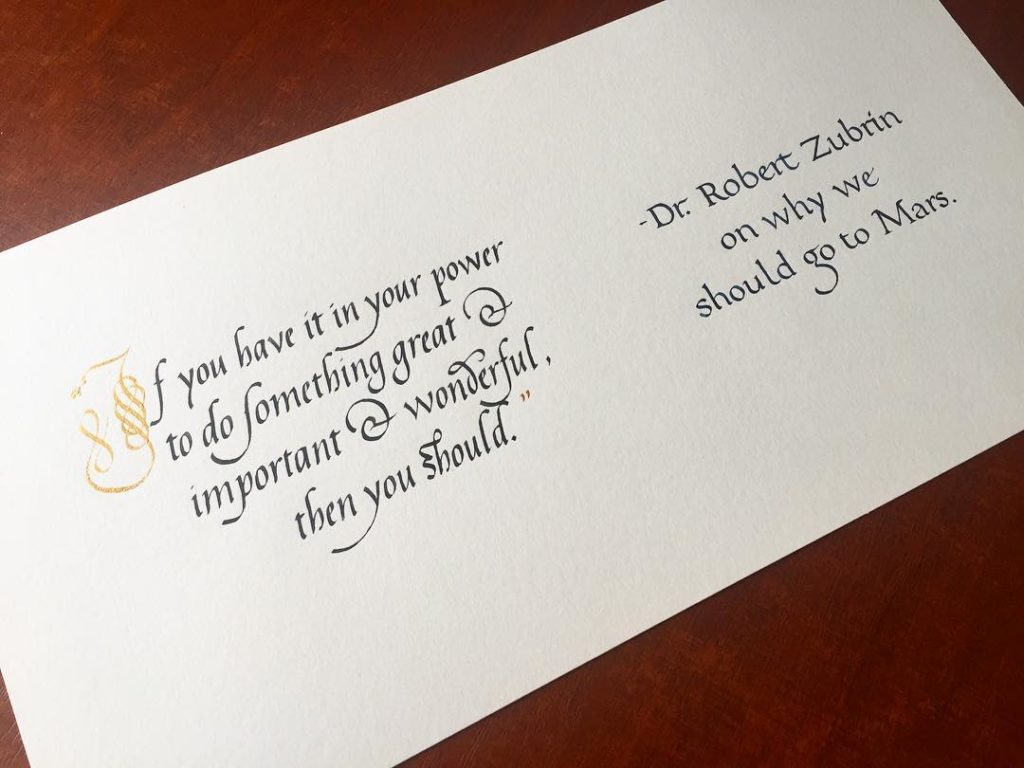 "If you have it in your power
to do something great &
important & wonderful,
then you should."
-Dr. Robert Zubrin
on why we
should go to Mars.